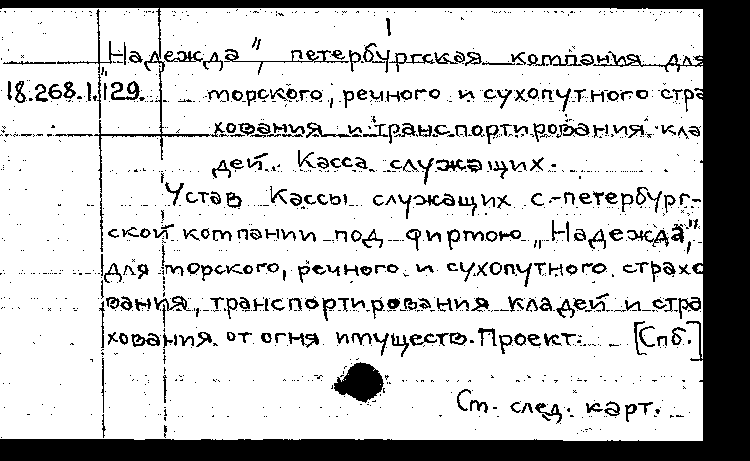 "Надежда", петербургская компания для
18.268.1.129. морского, речного и сухопутного стра
хования и транспортирования кла
дей. Касса служащих.
Устав Кассы служащих С.-петербург-
ской компании под фирмою „Надежда",
для морского, речного и сухопутного страхо
вания, транспортирования кладей и стра
хования от огня имуществ. Проект. [Спб.]
См. след. карт.